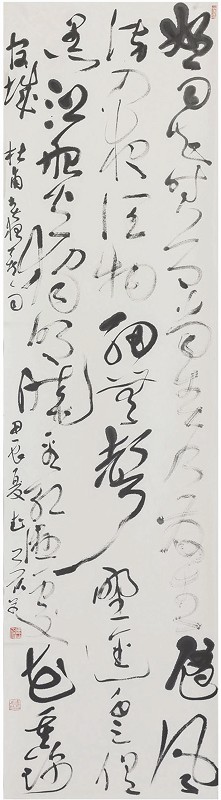 好雨知时节当春乃发生随风
潜入夜润物细无声野径云俱
黑江船火独明晓看红湿处花重锦
官城 杜甫春夜喜雨 甲辰夏